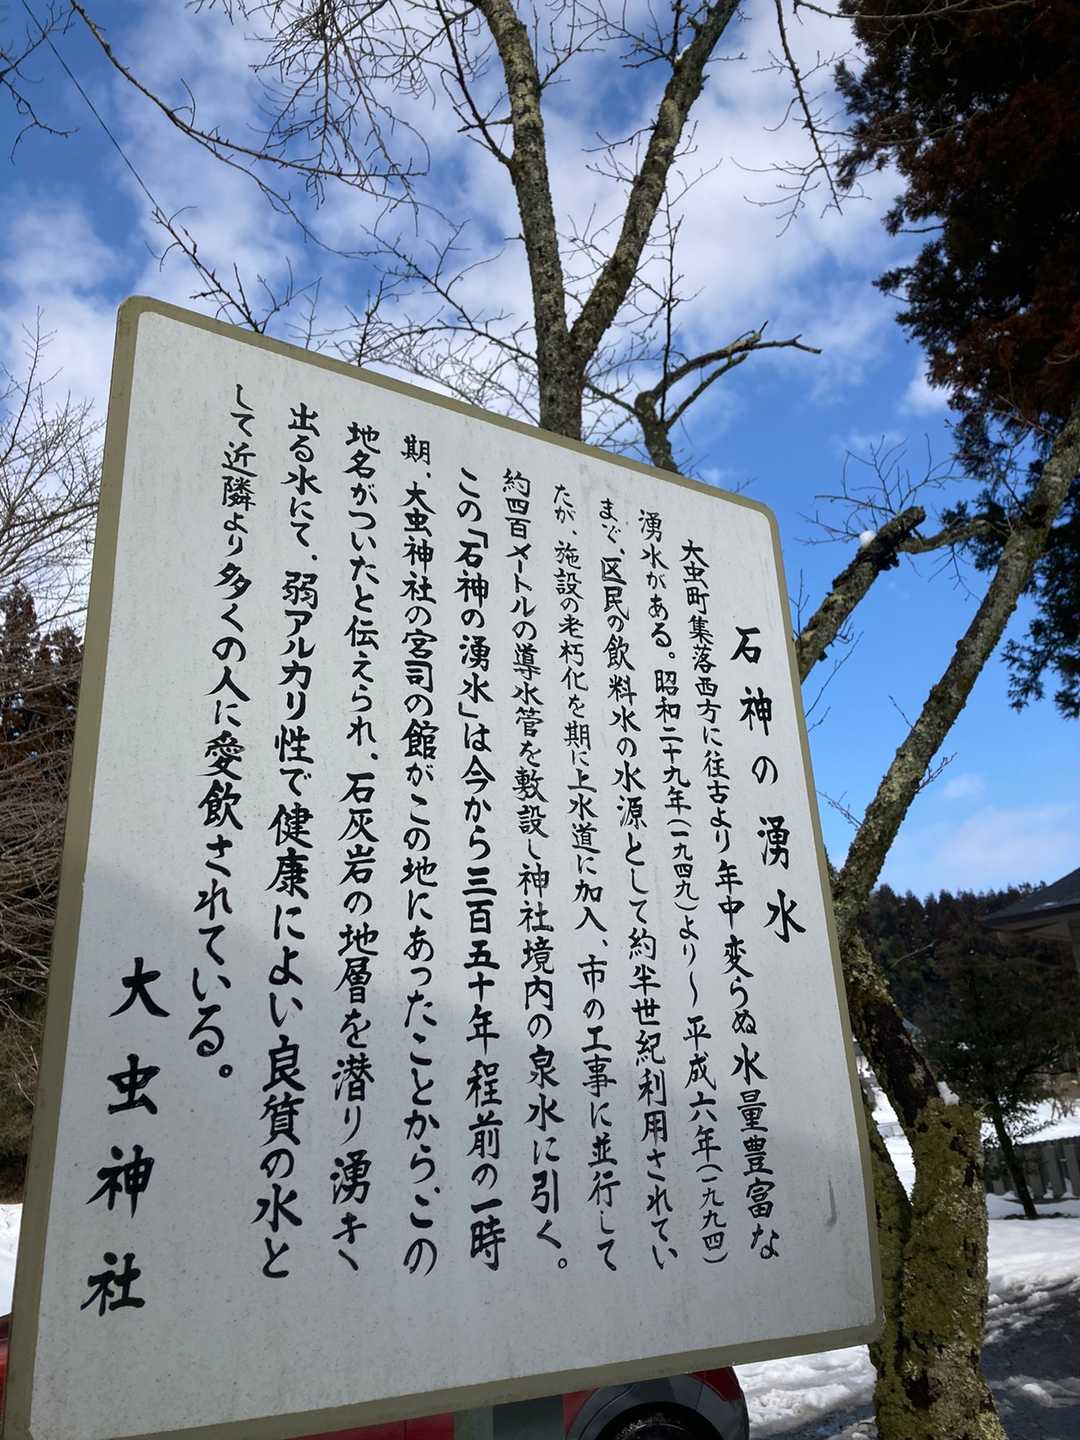 石神の湧水
大虫町集落西方に往古より年中変らぬ水量豊富な
湧水がある。昭和二十九年(一九四九)より～平成六年(一九九四)
まで、区民の飲料水の水源として約半世紀利用されてい
たが、施設の老朽化を期に上水道に加入、市の工事に並行して
約四百メートルの導水管を敷設し神社境内の泉水に引く。
この「石神の湧水」は今から三百五十年程前の一時
期、大虫神社の宮司の館がこの地にあったことからこの
地名がついたと伝えられ、石灰岩の地層を潜り湧き
出る水にて、弱アルカリ性で健康によい良質の水と
して近隣より多くの人に愛飲されている。
大虫神社